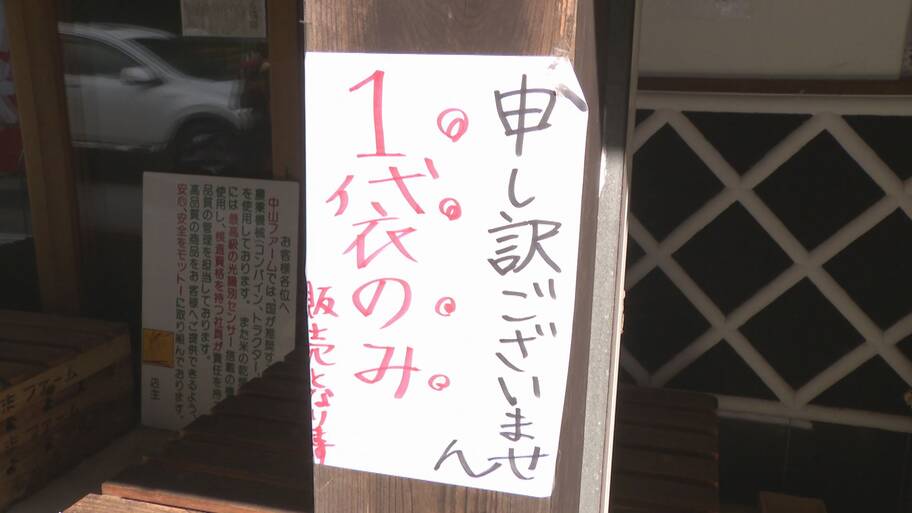 申し訳ございません
1袋のみ
販売となります
お客様各位へ
中山ファームでは、国が推奨す
機械(コンバイン、トラクター、
を使用しております。また米の乾燥
には最高級の光識別センサー搭載の機
使用し、検査資格を持つ社員が責任を持
品質の管理を担当しております。
高品質の商品をお客様へご提供できるよう、
安心、安全をモットーに取り組んでおります。
店主
ファーム